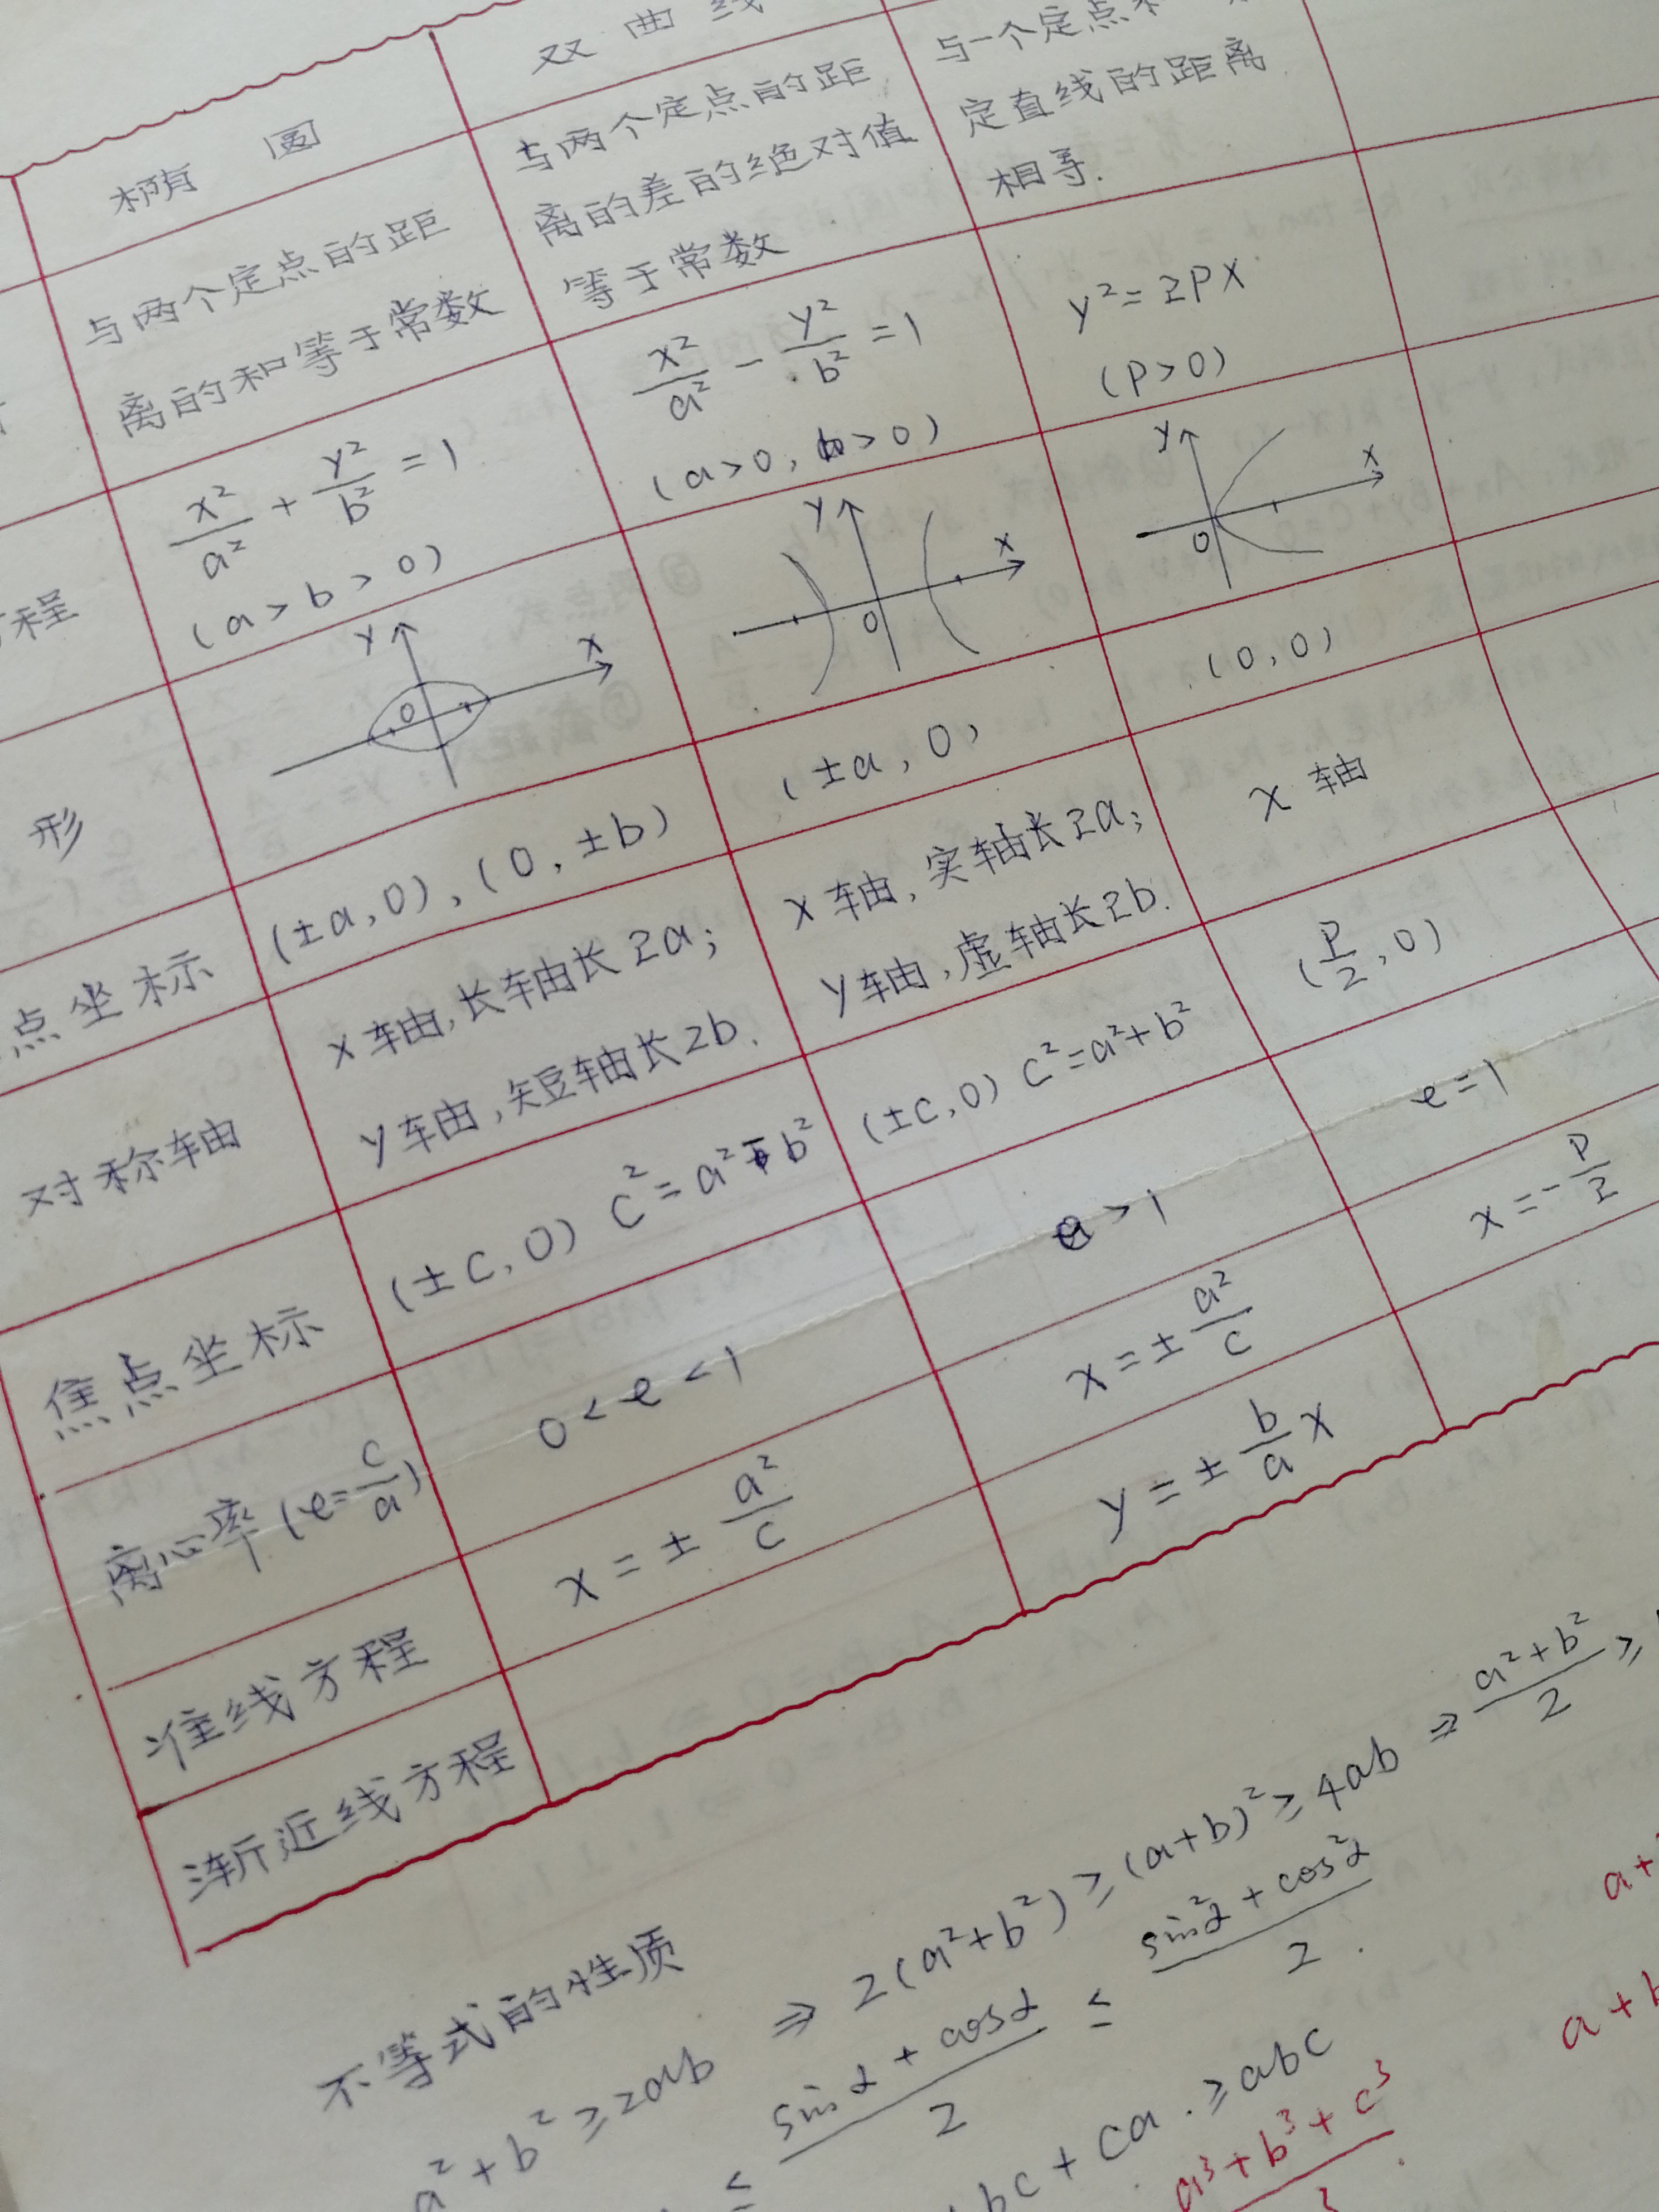 椭 圆
双 曲 线
与两个定点的距
离的和等于常数
与两个定点的距
离的差的绝对值
等于常数
与一个定点
定直线的距离
相等.
方程
x²/a² + y²/b² = 1
(a > b > 0)
x²/a² - y²/b² = 1
(a > 0, b > 0)
y² = 2px
(p > 0)
形
y x 0
y x 0
y x 0
点坐标
(±a, 0), (0, ±b)
(±a, 0)
(0, 0)
对称轴
x轴, 长轴长2a;
y轴, 短轴长2b.
x轴, 实轴长2a;
y轴, 虚轴长2b.
x 轴
焦点坐标
(±c, 0) c² = a² - b²
(±c, 0) c² = a² + b²
(p/2, 0)
离心率 (e = c/a)
0 < e < 1
e > 1
e = 1
准线方程
x = ± a²/c
x = ± a²/c
x = - p/2
渐近线方程
y = ± b/a x
不等式的性质
a² + b² ≥ 2ab ⇒ 2(a² + b²) ≥ (a+b)² ≥ 4ab ⇒ (a² + b²)/2 ≥
≤ (sinα + cosα)/2 ≤ (sin²α + cos²α)/2.
bc + ca. ≥ abc
a +
a + b
(a³ + b³ + c³)/3